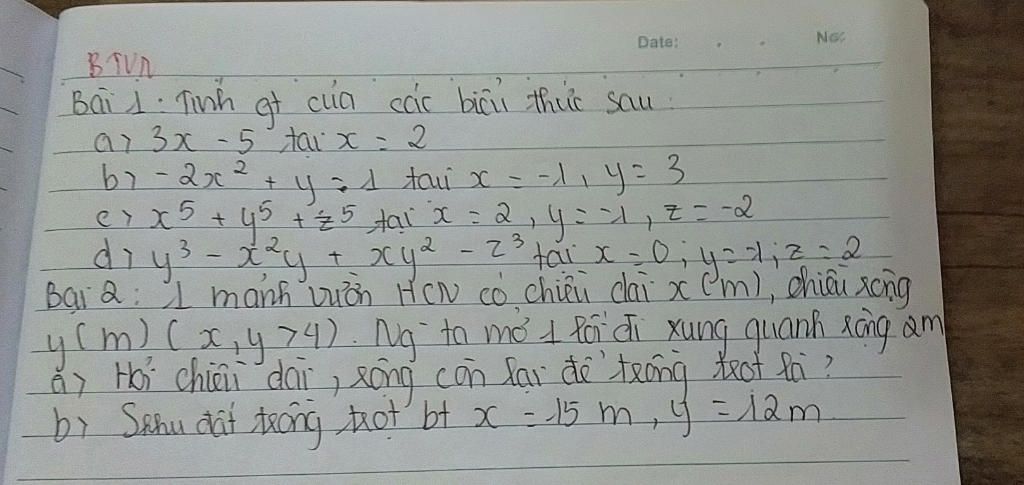 Date: No:
BTVN
Bài 1: Tính gt của các biểu thức sau:
a> 3x - 5 tại x = 2
b> -2x² + y = 1 tại x = -1, y = 3
c> x⁵ + y⁵ + z⁵ tại x = 2, y = -1, z = -2
d> y³ - x²y + xy² - z³ tại x = 0; y = -1; z = 2
Bài 2: 1 mảnh vườn HCN có chiều dài x (m), chiều rộng
y(m) (x, y > 4). Ng ta mở 1 lối đi xung quanh rộng 2m
a> Hỏi chiều dài, rộng còn lại để trồng trọt là?
b> Skhu đất trồng trọt bt x = 15 m, y = 12m